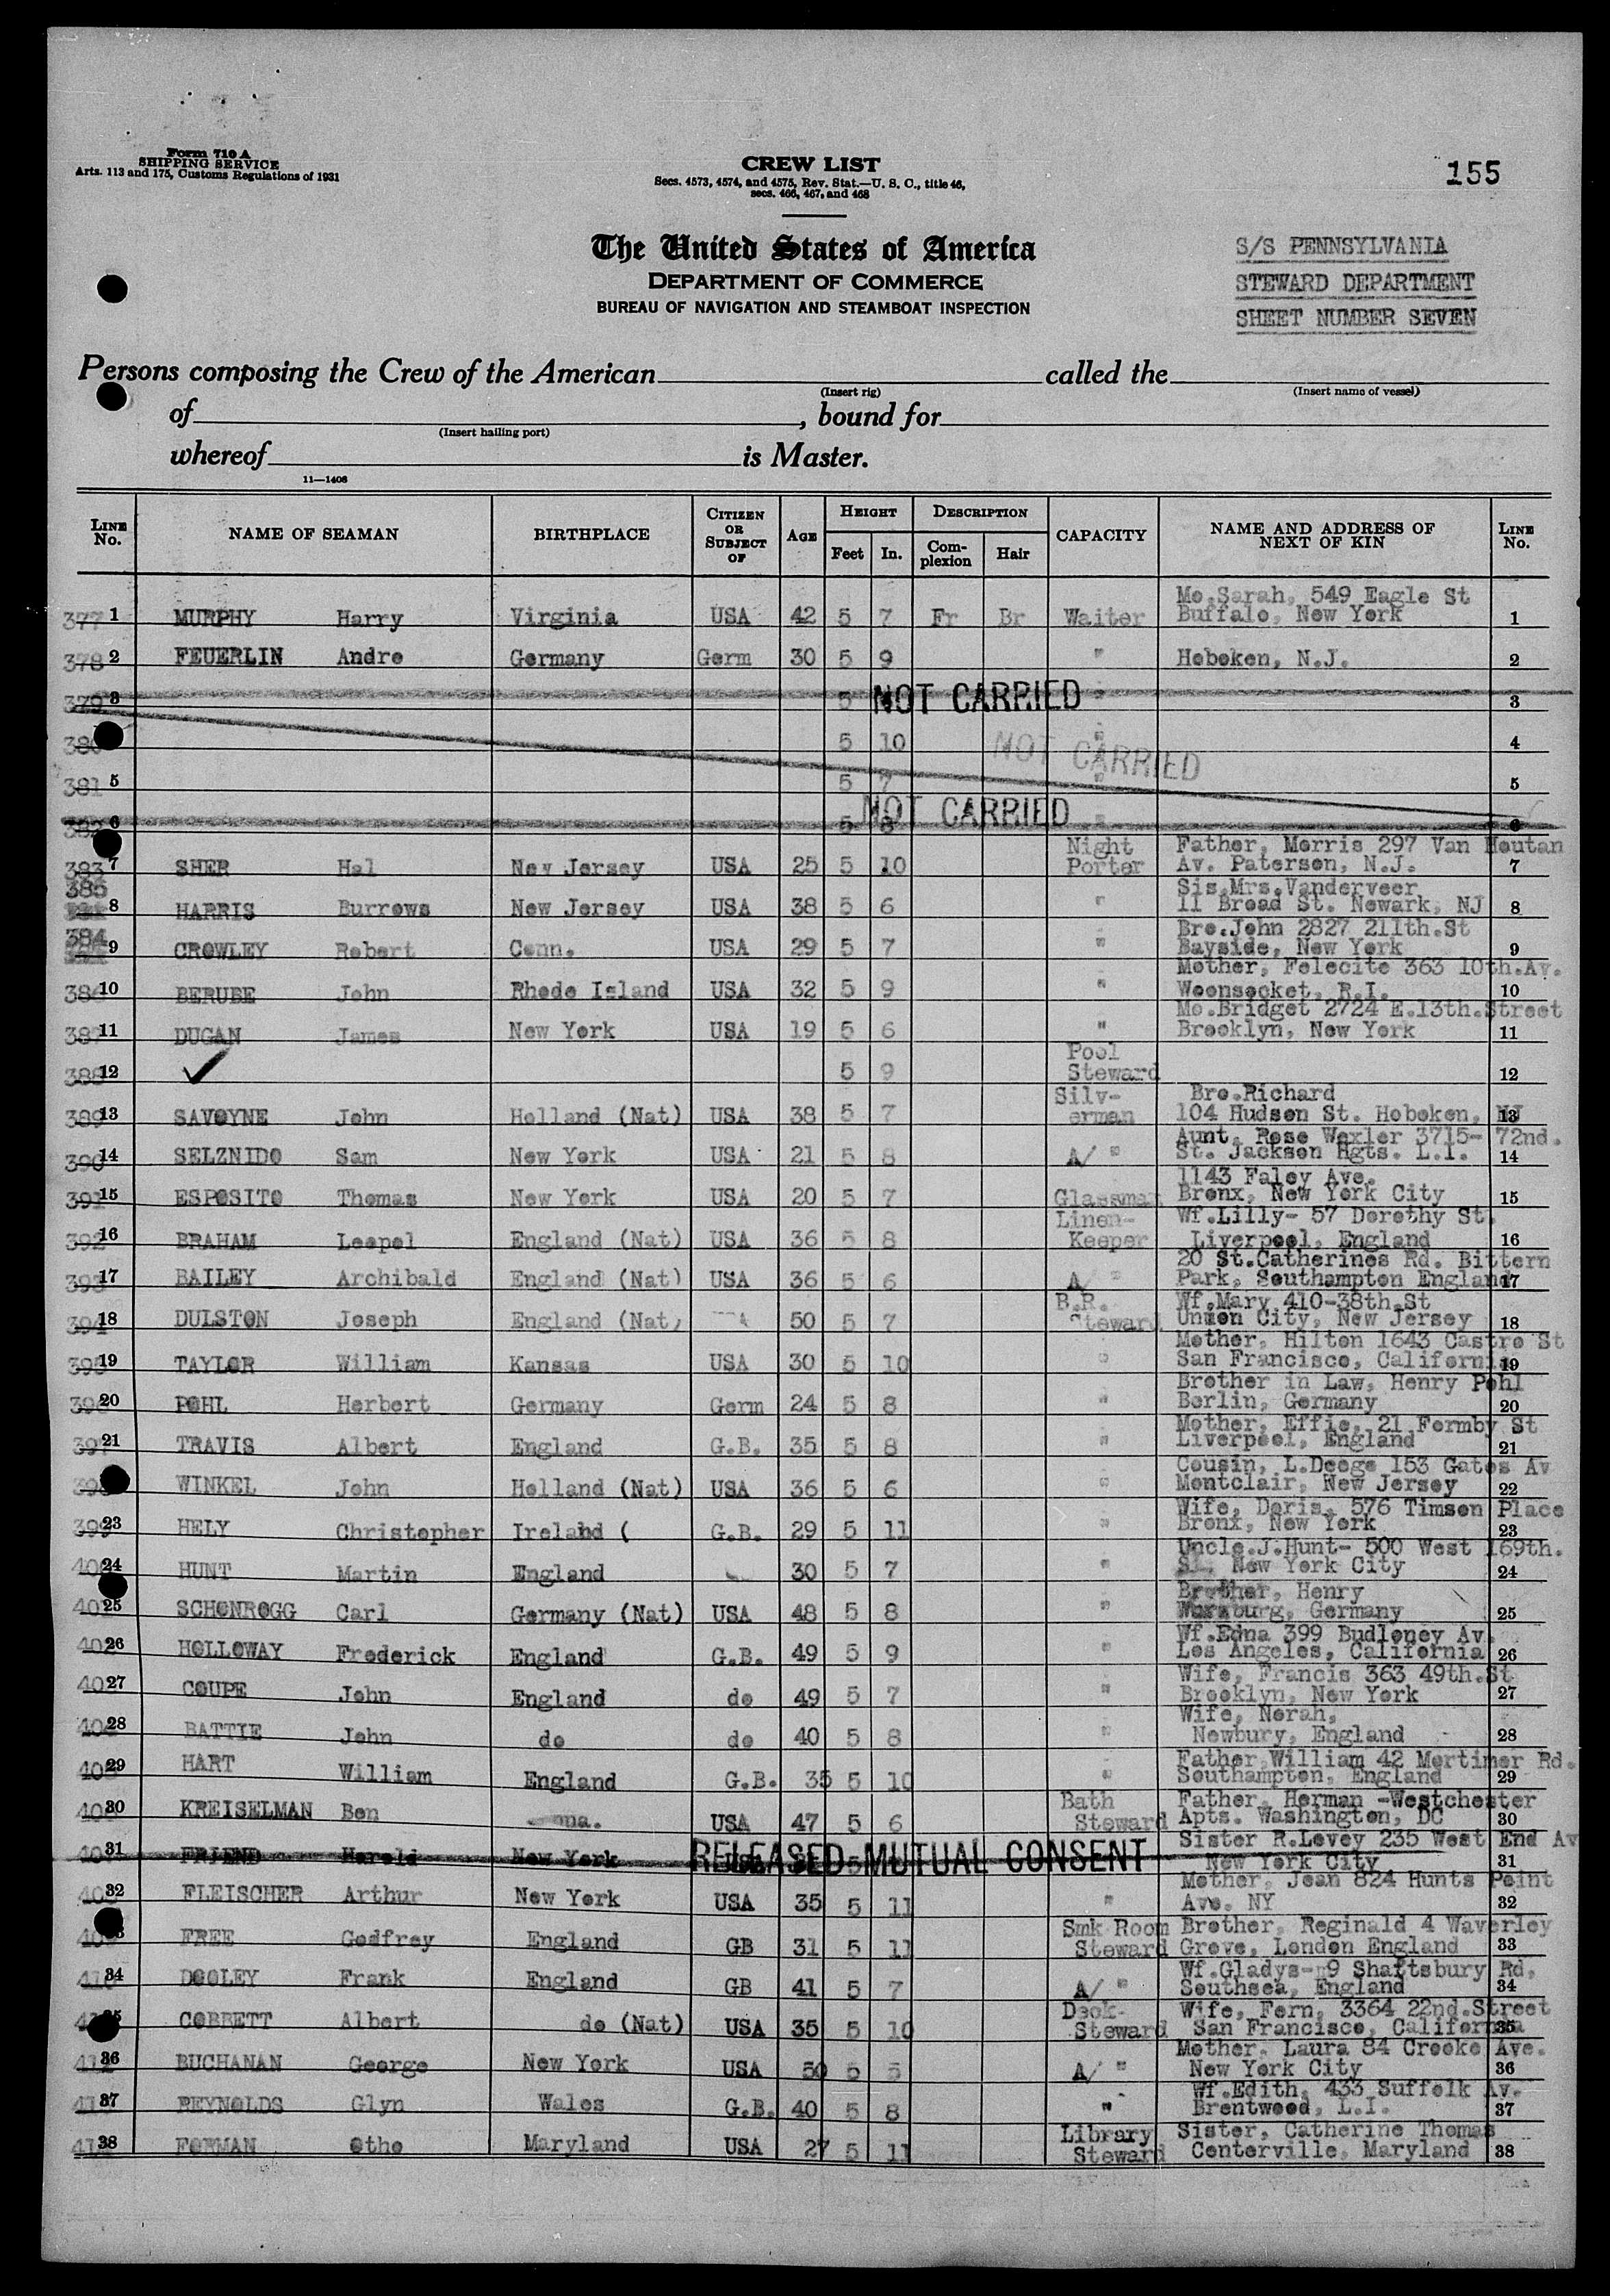 Form 710 A
SHIPPING SERVICE
Arts. 113 and 175, Customs Regulations of 1931
CREW LIST
Secs. 4573, 4574, and 4575, Rev. Stat.—U. S. C., title 46,
secs. 466, 467, and 468
155
The United States of America
DEPARTMENT OF COMMERCE
BUREAU OF NAVIGATION AND STEAMBOAT INSPECTION
S/S PENNSYLVANIA
STEWARD DEPARTMENT
SHEET NUMBER SEVEN
Persons composing the Crew of the American called the
(Insert rig) (Insert name of vessel)
of , bound for
(Insert hailing port)
whereof is Master.
11—1408
LINE No. NAME OF SEAMAN BIRTHPLACE CITIZEN OR SUBJECT OF AGE HEIGHT Feet In. DESCRIPTION Complexion Hair CAPACITY NAME AND ADDRESS OF NEXT OF KIN LINE No.
Mo.Sarah, 549 Eagle St
377 1 MURPHY Harry Virginia USA 42 5 7 Fr Br Waiter Buffalo, New York 1
378 2 FEUERLIN Andre Germany Germ 30 5 9 " Hoboken, N.J. 2
379 3 5 NOT CARRIED " 3
380 5 10 NOT CARRIED " 4
381 5 5 7 " 5
382 6 5 8 NOT CARRIED " 6
Night Father, Morris 297 Van Houtan
383 7 SHER Hal New Jersey USA 25 5 10 Porter Av. Paterson, N.J. 7
385 Sis.Mrs.Vanderveer
8 HARRIS Burrows New Jersey USA 38 5 6 " 11 Broad St. Newark, NJ 8
384 Bro.John 2827 211th.St
9 CROWLEY Robert Conn. USA 29 5 7 " Bayside, New York 9
Mother, Felecite 363 10th.Av.
386 10 BERUBE John Rhode Island USA 32 5 9 " Woonsocket, R.I. 10
Mo.Bridget 2724 E.13th.Street
387 11 DUGAN James New York USA 19 5 6 " Brooklyn, New York 11
Pool
388 12 ✓ 5 9 Steward 12
Silv- Bro.Richard
389 13 SAVOYNE John Holland (Nat) USA 38 5 7 erman 104 Hudson St. Hoboken, NJ 13
Aunt, Rose Wexler 3715- 72nd.
390 14 SELZNIDO Sam New York USA 21 5 8 A/ " St. Jackson Hgts. L.I. 14
1143 Faley Ave.
391 15 ESPOSITO Thomas New York USA 20 5 7 Glassman Bronx, New York City 15
Linen- Wf.Lilly- 57 Dorothy St.
392 16 BRAHAM Leopel England (Nat) USA 36 5 8 Keeper Liverpool, England 16
20 St.Catherines Rd. Bittern
393 17 BAILEY Archibald England (Nat) USA 36 5 6 A/ " Park, Southampton England 17
B.R. Wf.Mary 410-38th.St
394 18 DULSTON Joseph England (Nat) 50 5 7 Steward Union City, New Jersey 18
Mother, Hilton 1643 Castro St
395 19 TAYLOR William Kansas USA 30 5 10 " San Francisco, California 19
Brother in Law, Henry Pohl
396 20 POHL Herbert Germany Germ 24 5 8 " Berlin, Germany 20
Mother, Effie, 21 Formby St
397 21 TRAVIS Albert England G.B. 35 5 8 " Liverpool, England 21
Cousin, L.Deege 153 Gates Av
398 WINKEL John Holland (Nat) USA 36 5 6 " Montclair, New Jersey 22
Wife, Doris, 576 Timson Place
399 23 HELY Christopher Ireland ( G.B. 29 5 11 " Bronx, New York 23
Uncle.J.Hunt- 500 West 169th.
400 24 HUNT Martin England 30 5 7 " St. New York City 24
Brother, Henry
401 25 SCHONROGG Carl Germany (Nat) USA 48 5 8 " Germany 25
Wf.Edna 399 Budloney Av.
402 26 HOLLOWAY Frederick England G.B. 49 5 9 " Los Angeles, California 26
Wife, Francis 363 49th.St
403 27 COUPE John England do 49 5 7 " Brooklyn, New York 27
Wife, Norah,
404 28 BATTIE John do do 40 5 8 " Newbury, England 28
Father,William 42 Mortimer Rd.
405 29 HART William England G.B. 35 5 10 " Southampton, England 29
Bath Father, Herman -Westchester
406 30 KREISELMAN Ben USA 47 5 6 Steward Apts. Washington, DC 30
Sister R.Levey 235 West End Av
407 31 FRIEND Harold New York RELEASED MUTUAL CONSENT New York City 31
Mother, Jean 824 Hunts Point
408 32 FLEISCHER Arthur New York USA 35 5 11 " Ave. NY 32
Smk Room Brother, Reginald 4 Waverley
409 FREE Godfrey England GB 31 5 11 Steward Grove, London England 33
Wf.Gladys- 9 Shaftsbury Rd,
410 34 DOOLEY Frank England GB 41 5 7 A/ " Southsea, England 34
Deck- Wife, Fern, 3364 22nd.Street
411 35 COBBETT Albert do (Nat) USA 35 5 10 Steward San Francisco, California 35
Mother, Laura 84 Crooke Ave.
412 36 BUCHANAN George New York USA 50 5 5 A/ " New York City 36
Wf.Edith, 433 Suffolk Av.
413 37 REYNOLDS Glyn Wales G.B. 40 5 8 " Brentwood, L.I. 37
Library Sister, Catherine Thomas
414 38 FORMAN Otho Maryland USA 27 5 11 Steward Centerville, Maryland 38